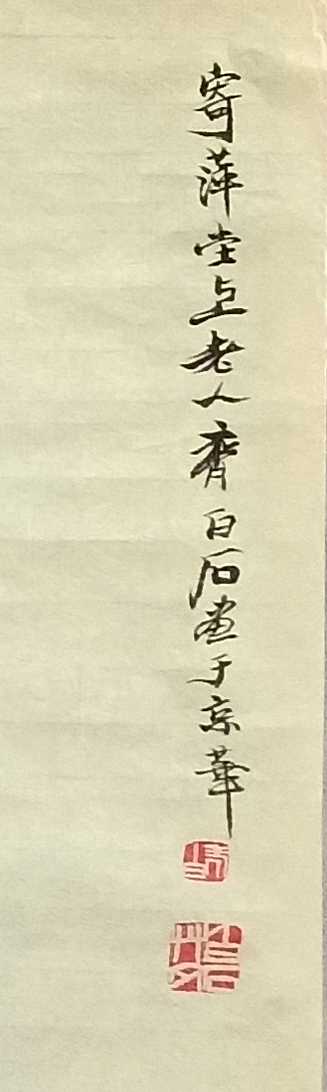 寄萍堂上老人齊白石画于京華